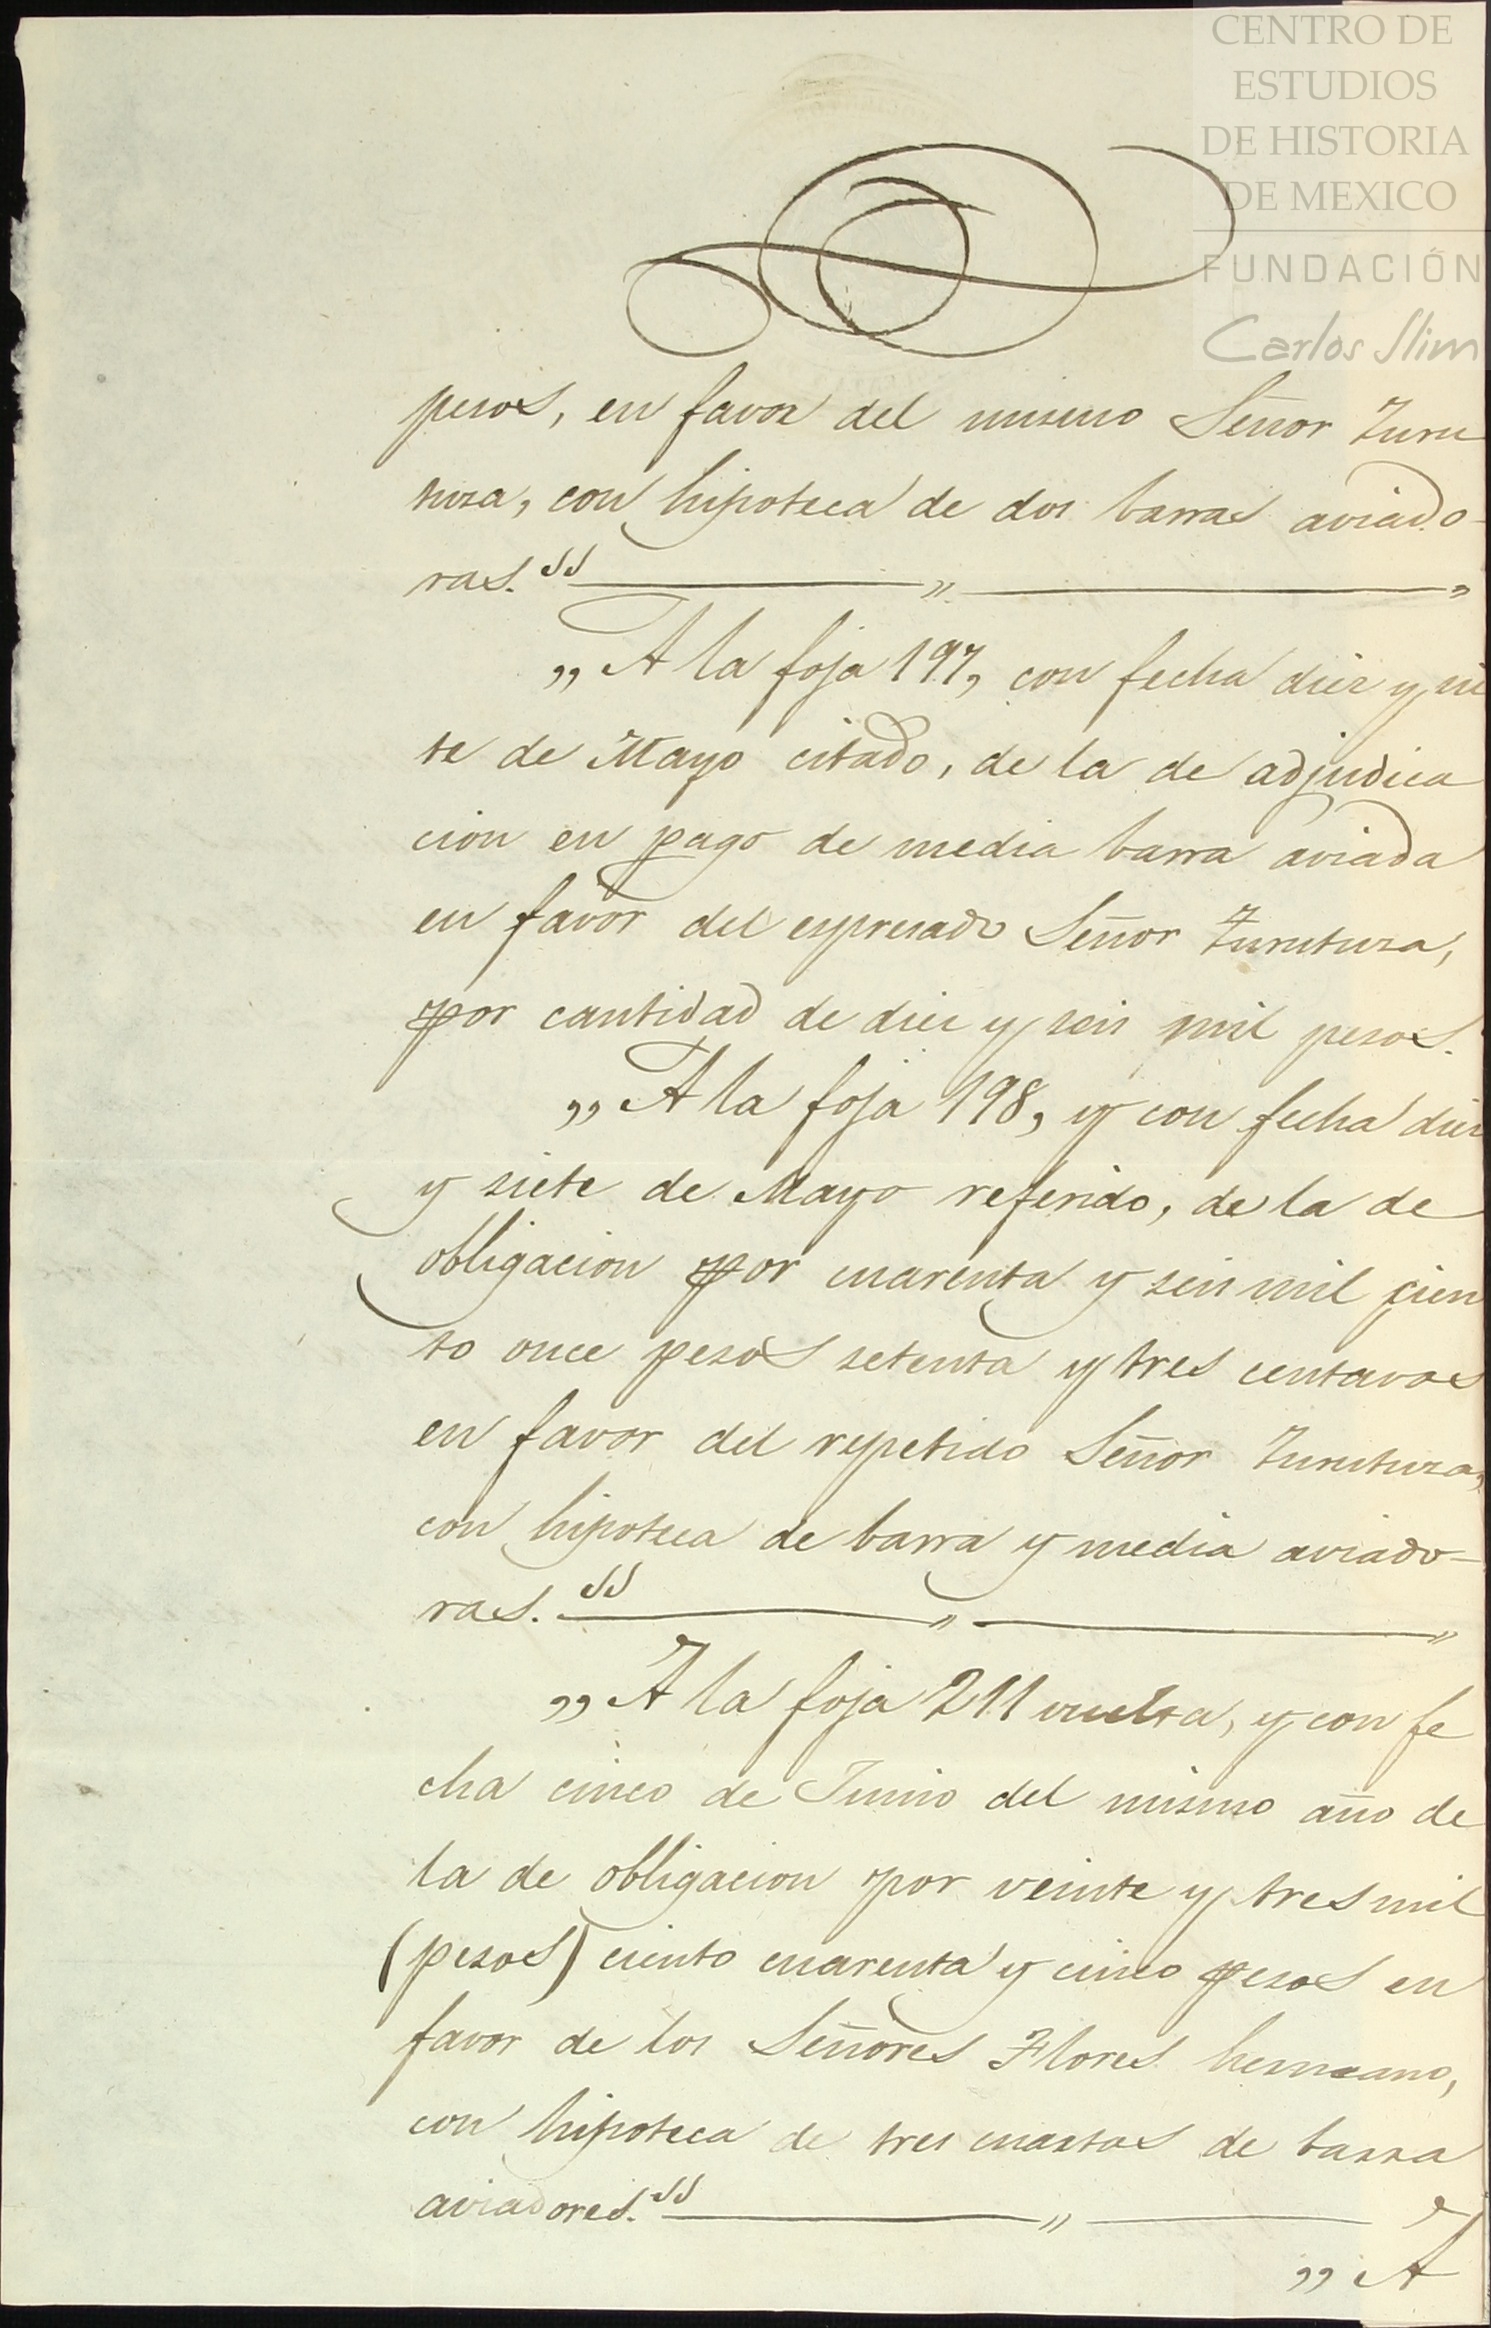 CENTRO DE
ESTUDIOS
DE HISTORIA
DE MEXICO
FUNDACIÓN
Carlos Slim
pesos, en favor del mismo Señor Zuru
tuza, con hipoteca de dos barras aviado-
ras." ——— " ——— "
„ A la foja 197, con fecha diez y sie
te de Mayo citado, de la de adjudica
cion en pago de media barra aviada
en favor del espresado Señor Zurutuza,
por cantidad de diez y seis mil pesos.
„ A la foja 198, y con fecha diez
y siete de Mayo referido, de la de
obligacion por cuarenta y seis mil cien
to once pesos setenta y tres centavos
en favor del repetido Señor Zurutuza,
con hipoteca de barra y media aviado-
ras." ——— " ——— "
„ A la foja 211 vuelta, y con fe
cha cinco de Junio del mismo año de
la de obligacion por veinte y tres mil
(pesos) ciento cuarenta y cinco pesos en
favor de los Señores Flores hermano,
con hipoteca de tres cuartos de barra
aviadores." ——— " ———
„ A